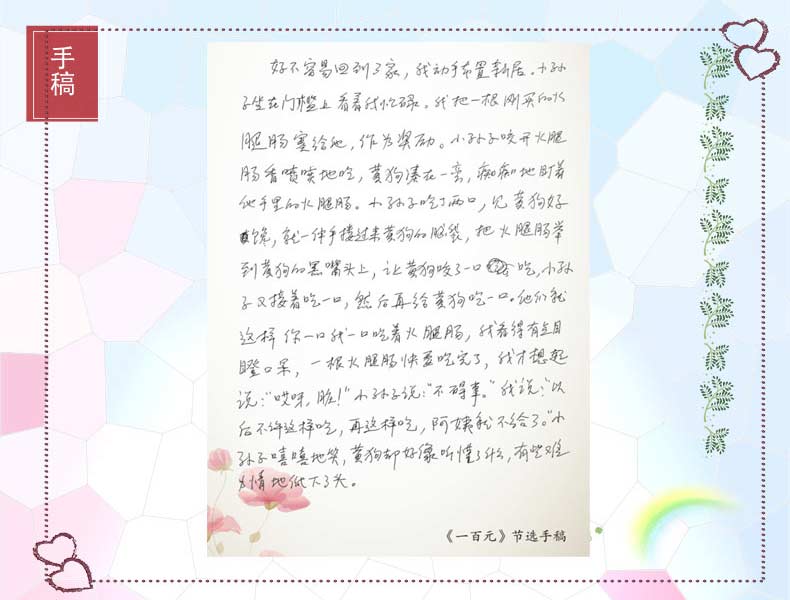 手稿
好不容易回到了家，我动手布置新居。小孙
子坐在门槛上看着我忙碌。我把一根刚买的火
腿肠塞给他，作为奖励。小孙子咬开火腿
肠香喷喷地吃，黄狗凑在一旁，痴痴地盯着
他手里的火腿肠。小孙子吃了两口，见黄狗好
馋，就一伸手搂过来黄狗的脑袋，把火腿肠举
到黄狗的黑嘴头上，让黄狗咬了一口吃，小孙
子又接着吃一口，然后再给黄狗吃一口。他们就
这样你一口我一口吃着火腿肠，我看得有点目
瞪口呆，一根火腿肠快要吃完了，我才想起
说："哎呀，脏！"小孙子说："不碍事。"我说："以
后不许这样吃，再这样吃，阿姨就不给了。"小
孙子嘻嘻地笑，黄狗却好像听懂了什么，有些难
为情地低下了头。
《一百元》节选手稿